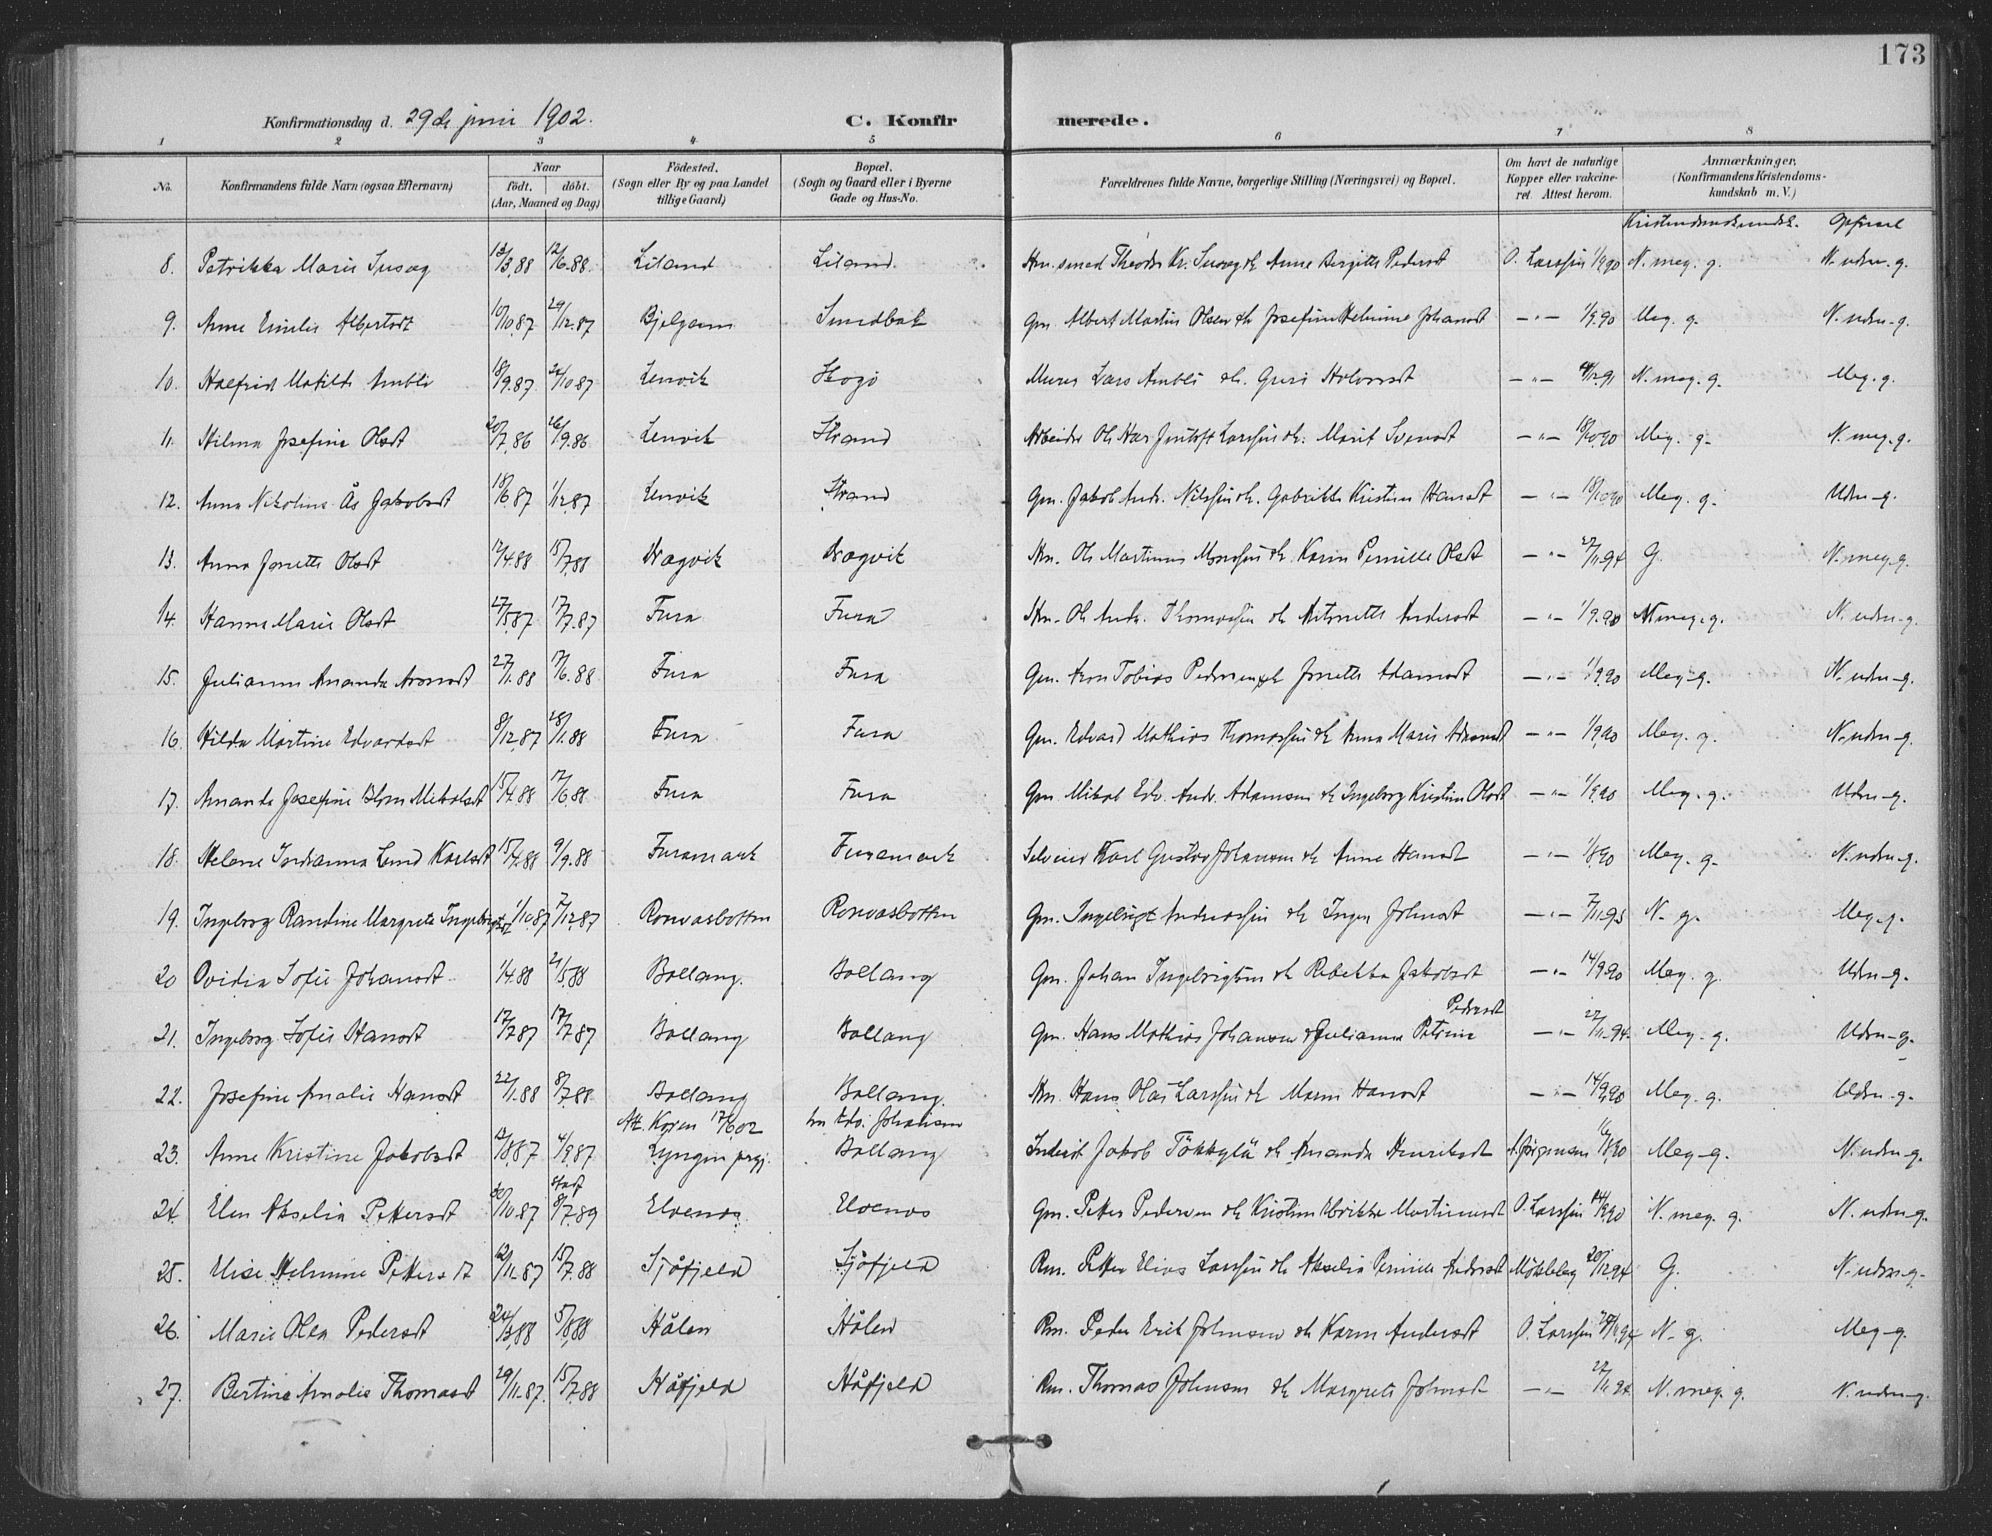 173
Konfirmationsdag d. 29de juni 1902. C. Konfirmerede.
1 2 3 4 5 6 7 8
No. Konfirmandens fulde Navn (ogsaa Efternavn) Naar født. døbt. (Aar, Maaned og Dag) Fødested. (Sogn eller By og paa Landet tillige Gaard) Bopæl. (Sogn og Gaard eller i Byerne Gade og Hus-No. Forældrenes fulde Navne, borgerlige Stilling (Næringsvei) og Bopæl. Om havt de naturlige Kopper eller vaccineret. Attest herom. Anmærkninger. (Konfirmandens Kristendomskundskab m. V.)
Kristendomskundsk. Opførsel
8. Petrikka Marie 13/3.88 12/6.88. Liland Liland Hm. smed Theodor Kr. & Anne Birgitte Pedersdt O. Larssen 1/9.90 N. meg. g. N. udm-g.
9. Anne Emelie Albertsdt 10/10.87 29/12.87 Bjelgam Sundbak Gm. Albert Martin Olsen & Josefine Helmine Johansdt —„— 1/9.90 Meg. g. N. udm-g.
10. Halfrid Matilde 18/9.87 24/10.87 Lenvik Skogø Murer Lars & Guri Halvorsdt —„— N. meg. g. Meg. g.
11. Hilma Josefine Olsdt 20/7.86 26/9.86 Lenvik Strand Arbeider Ole Larssen & Marit Svensdt —„— 18/10.90 Meg. g. N. meg. g.
12. Anna Nikoline Ås Jakobsdt 18/6.87 1/12.87 Lenvik Strand Gm. Jakob Andr. Nilssen & Gabrikke Kristine Hansdt —„— 18/10.90 Meg. g. Udm-g.
13. Anna Jonette Olsdt 12/4.88 15/7.88 Dragvik Dragvik Hm. Ole Martinus Monssen & Karen Pernille Olsdt —„— 27/11.94 G. N. meg. g.
14. Hanna Marie Olsdt 27/5.87 17/7.87 Fura Fura Hm. Ole Andr. Thomassen & Antonette Andersdt —„— 1/9.90 N meg. g. N. udm-g.
15. Julianne Amanda Aronsdt 27/1.88 17/6.88 Fura Fura Gm. Aron Tobias Pedersen & Jonette Adamsdt —„— 1/9.90 Meg-g. N. udm-g.
16. Hilda Martine Edvardsdt 8/12.87 28/1.88 Fura Fura Gm. Edvard Mathias Thomassen & Anna Marie Adamsdt —„— 1/9.90 Meg. g. N. udm-g.
17. Amanda Josefine Mikalsdt 15/4.88 17/6.88 Fura Fura Gm. Mikal Edv. Andr. Adamsen & Ingeborg Kristine Olsdt —„— 1/9.90 Meg. g. Udm-g.
18. Helene Jordanna Lund Karlsdt 15/4.88 9/9.88 Furamark Furamark Selveier Karl Gustav Johansen & Anne Hansdt —„— 1/8.90 Meg. g. N. udm-g.
19. Ingeborg Randine Margrete Ingebrigtsdt 1/10.87 7/12.87 Ronvasbotten Ronvasbotten Gm. Ingebrigt Andreassen & Inger Johnsdt —„— 7/11.95 N. g. Meg-g.
20 Ovidia Sofie Johansdt 1/4.88 21/5.88 Bollang. Bollang Gm. Johan Ingebrigtsen & Rebekka Jakobsdt —„— 14/9.90 Meg. g. Udm-g.
Pedersdt
21. Ingeborg Sofie Hansdt 12/7.87 17/7.87 Bollang Bollang Gm. Hans Mathias Johansen & Julianna Petrine —„— 27/11.94. Meg. g. Udm-g.
22. Josefine Amalie Hansdt 22/1.88 8/7.88 Bollang Bollang. Hm. Hans Olai Larssen & Maren Hansdt —„— 14/9.90 Meg. g. Udm-g.
Att. Koren 17/6.02 hm Edv. Johansen
23. Anne Kristine Jakobsdt 12/8.87 4/9.87 Lyngen prgj. Bollang Inderst Jakob Tökkylä & Amanda Henriksdt A. Jørgensen 16/8.90 Meg-g. N. udm-g.
stadf
24. Elen Akselia Pettersdt 30/10.87 8/7.89 Elvenes Elvenes Gm. Petter Pedersen & Kristine Ulrikke Martinusdt O. Larssen 14/9.90 N. meg. g. N. udm-g.
25. Elise Helmine Pettersdt 12/11.87 15/7.88 Sjøfjeld Sjøfjeld Rm. Petter Elias Larssen & Akselia Pernille Andersdt Møkleleg 20/12.94 G. N. udm-g.
26. Marie Olea Pedersdt 24/3.88 5/8.88 Hålen Hålen Rm. Peder Erik Johnsen & Karen Andersdt O. Larssen 27/11.94 N. g. Meg-g.
27. Bertine Amalie Thomasdt 29/11.87. 15/7.88 Håfjeld Håfjeld Rm. Thomas Johnsen & Margrete Johnsdt —„— 27/11.94. N. meg. g. N. udm-g.